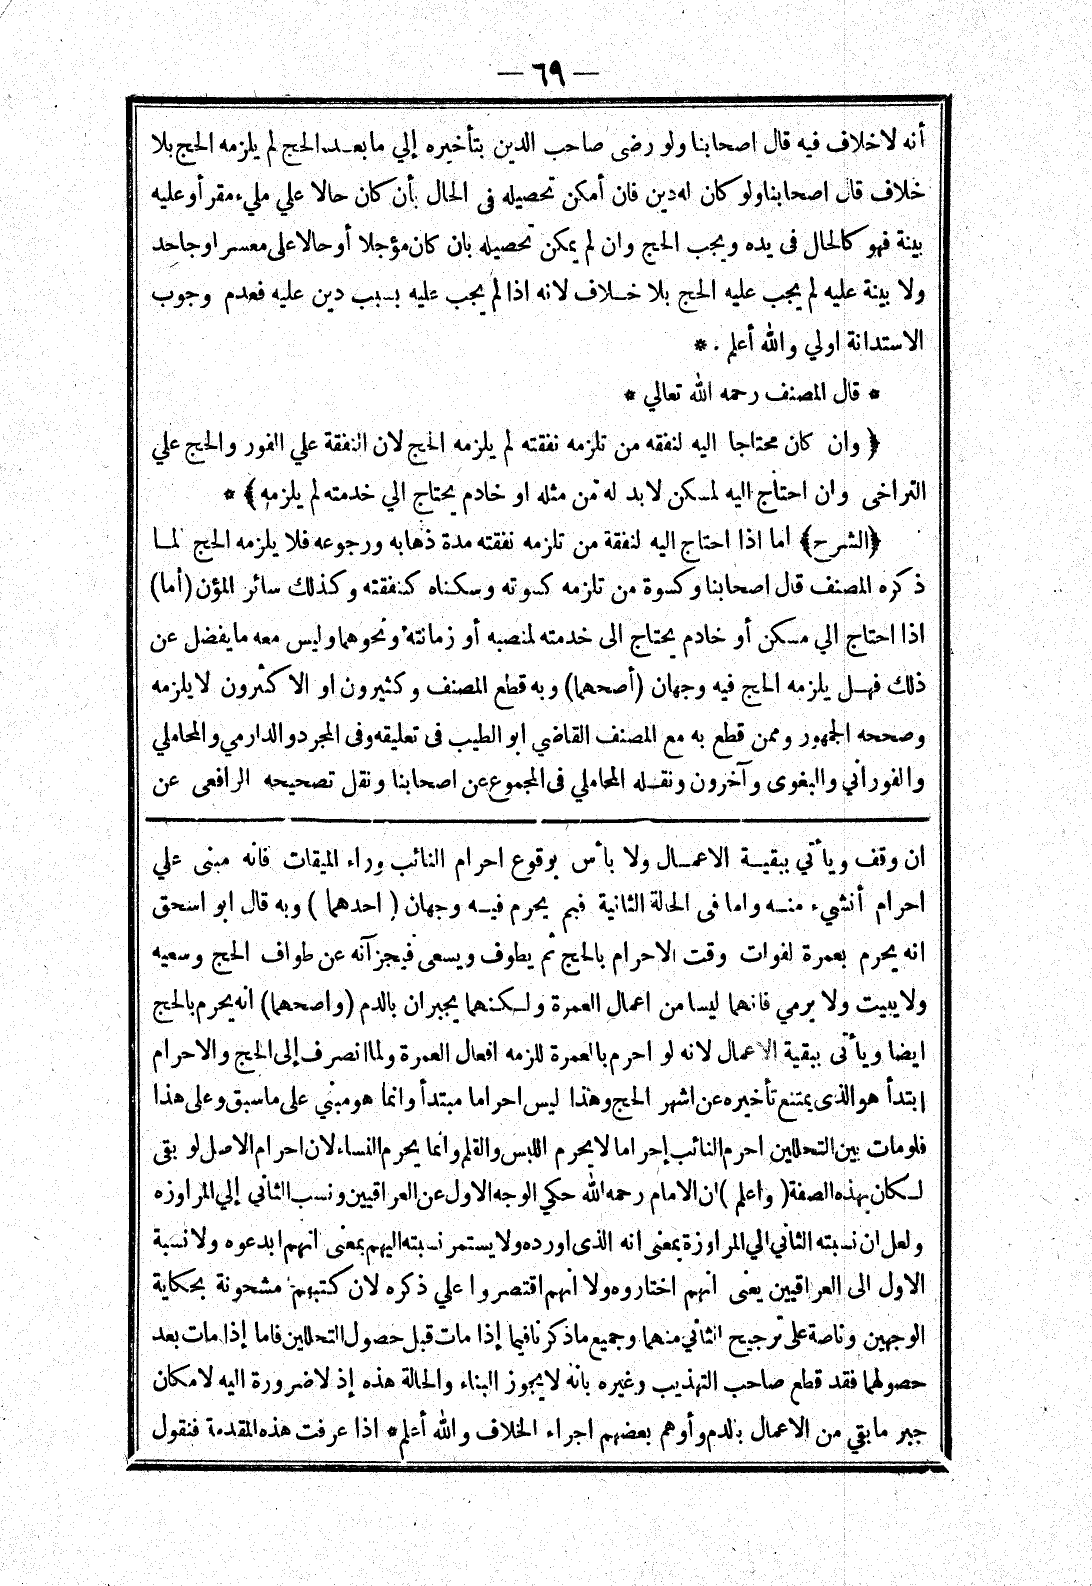 — ٦٩ —
أنه لا خلاف فيه قال اصحابنا ولو رضى صاحب الدين بتأخيره إلي ما بعد الحج لم يلزمه الحج بلا
خلاف قال اصحابنا ولو كان له دين فان أمكن تحصيله فى الحال بأن كان حالا علي مليء مقر أو عليه
بينة فهو كالحال فى يده ويجب الحج وان لم يمكن تحصيله بان كان مؤجلا أو حالا على معسر او جاحد
ولا بينة عليه لم يجب عليه الحج بلا خلاف لانه اذا لم يجب عليه بسبب دين عليه فعدم وجوب
الاستدانة اولي والله أعلم . *
* قال المصنف رحمه الله تعالي *
﴿ وان كان محتاجا اليه لنفقه من تلزمه نفقته لم يلزمه الحج لان النفقة علي الفور والحج علي
التراخى وان احتاج اليه لمسكن لابد له من مثله او خادم يحتاج الي خدمته لم يلزمه ﴾ *
﴿الشرح﴾ أما اذا احتاج اليه لنفقة من تلزمه نفقته مدة ذهابه ورجوعه فلا يلزمه الحج لما
ذكره المصنف قال اصحابنا وكسوة من تلزمه كسوته وسكناه كنفقته وكذلك سائر المؤن (أما)
اذا احتاج الي مسكن أو خادم يحتاج الى خدمته لمنصبه أو زمانته ونحوهما وليس معه ما يفضل عن
ذلك فهل يلزمه الحج فيه وجهان (أصحهما) وبه قطع المصنف وكثيرون او الاكثرون لا يلزمه
وصححه الجمهور وممن قطع به مع المصنف القاضي ابو الطيب فى تعليقه وفى المجرد والدارمي والمحاملي
والفوراني والبغوى وآخرون ونقله المحاملي فى المجموع عن اصحابنا ونقل تصحيحه الرافعى عن
ان وقف ويأتي ببقية الاعمال ولا بأس بوقوع احرام النائب وراء الميقات فانه مبنى علي
احرام أنشيء منه واما فى الحالة الثانية فبم يحرم فيه وجهان ( احدهما ) وبه قال ابو اسحق
انه يحرم بعمرة لفوات وقت الاحرام بالحج ثم يطوف ويسعى فيجزآنه عن طواف الحج وسعيه
ولا يبيت ولا يرمي فانهما ليسا من اعمال العمرة ولكنهما يجبران بالدم (واصحهما) انه يحرم بالحج
ايضا ويأتى ببقية الاعمال لانه لو احرم بالعمرة للزمه افعال العمرة ولما انصرف إلى الحج والاحرام
إبتدأ هو الذى يمتنع تأخيره عن اشهر الحج وهذا ليس احراما مبتدأ وانما هو مبني على ما سبق وعلى هذا
فلو مات بين التحللين احرم النائب إحراما لا يحرم اللبس والقلم وانما يحرم النساء لان احرام الاصل لو بقى
لكان بهذه الصفة ( واعلم ) ان الامام رحمه الله حكي الوجه الاول عن العراقيين ونسب الثاني إلي المراوزه
ولعل ان نسبته الثاني الي المراوزة بمعنى انه الذى اورده ولا يستمر نسبته اليهم بمعنى انهم ابدعوه ولا نسبة
الاول الى العراقيين يعنى انهم اختاروه ولا انهم اقتصروا علي ذكره لان كتبهم مشحونة بحكاية
الوجهين وناصة على ترجيح الثاني منهما وجميع ما ذكرنا فيما إذا مات قبل حصول التحللين فاما إذا مات بعد
حصولهما فقد قطع صاحب التهذيب وغيره بانه لا يجوز البناء والحالة هذه إذ لا ضرورة اليه لامكان
جبر ما بقي من الاعمال بالدم وأوهم بعضهم اجراء الخلاف والله أعلم * اذا عرفت هذه المقدمة فنقول